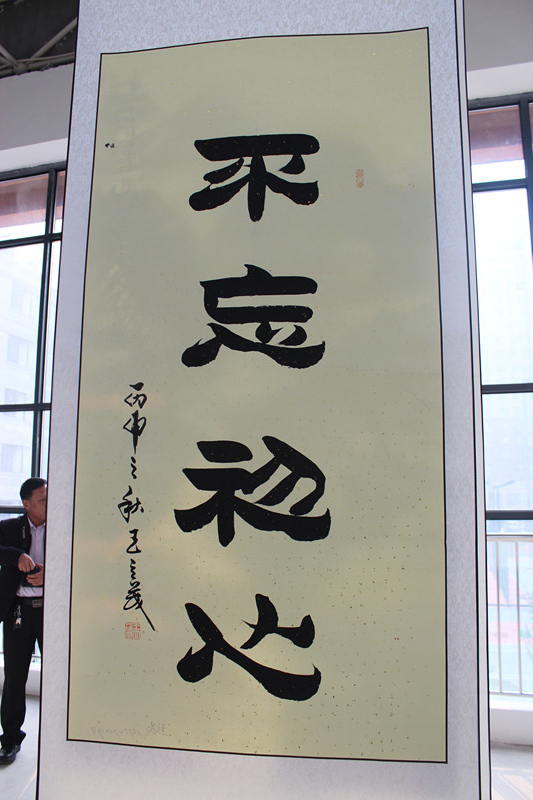 不忘初心
丙申之秋 王之義